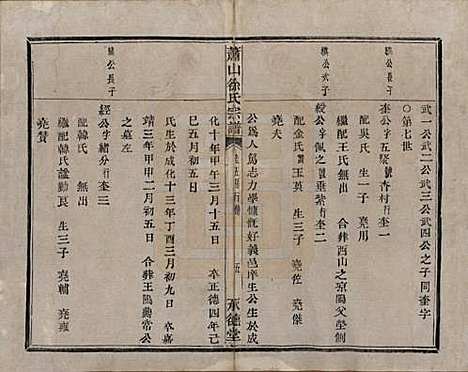 武一公武二公武三公武四公之子同奎字
〇第七世
騏公長子
奎公字五聚 香村行奎一
配吳氏 生一子 堯用
繼配王氏無出 合葬西山之京陽父塋側
騏公次子
綬公字佩之 垂紫行奎二
配金氏 王莫 生三子 堯佐 堯傑
堯夫
公爲人篤志力學慷慨好義邑庠生公生於成
化十年甲午三月十五日 卒正德四年己
巳五月初五日
氏生於成化十三年丁酉三月初九日 卒嘉
靖三年甲申二月初五日 合葬王隖勳常公
之墓左
騏公長子
經公字緒分行奎三
配韓氏 無出
繼配韓氏諡勤良 生三子 堯輔 堯雍
堯贊
蕭山徐氏宗譜
五
承德堂